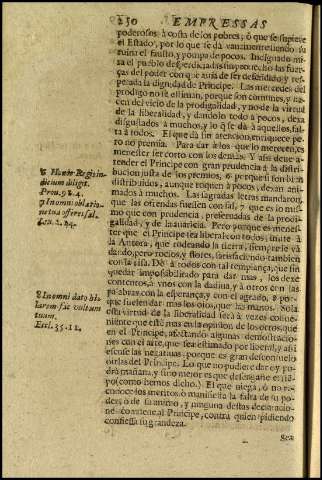 250 EMPRESSAS
poderosos à costa de los pobres; ò que se
el Estado, por lo que se dà vanamente
ruina el fausto y pompa de pocos. Indignase
el pueblo desperdiciadas sin provecho las fuer-
ças del poder con que avia de ser defendido, y res-
petada la dignidad de Principe. Las mercedes del
prodigo no se estiman, porque son comunes, y na-
cen del vicio de la prodigalidad, y no de la virtud
de la liberalidad, y dandolo todo à pocos, dexa
disgustados à muchos, y lo q̃ se dà à aquellos, fal-
ta à todos. El que dà sin atencion, enriquece pe-
ro no premia. Para dar à los que lo merecen, es
menester ser corto con los demas. Y assi deve a-
tender el Principe con gran prudencia à la distri-
bucion justa de los premios, porque si son bien
distribuidos, aunque toquen à pocos, dexan ani-
mados à muchos. Las sagradas letras mandaron,
que las ofrendas fuessen con sal, que es lo mis-
mo que con prudencia, preservadas de la prodi-
galidad, y de la avaricia. Pero porque es menes-
ter que el Principe sea liberal con todos, imite à
la Aurora, que rodeando la tierra, siempre le và
dando, pero rocios, y flores, satisfaciendo tambien
con la risa. Dè à todos con tal templança, que sin
quedar impossibilitado para dar mas, los dexe
contentos, à vnos con la dadiva, y à otros con las
palabras, con la esperança, y con el agrado, porque
suelen dar mas los ojos, que las manos. Sola
esta virtud de la liberalidad serà à vezes conve-
niente que estè mas en la opinion de los otros, que
en el Principe, afectando algunas demostracio-
nes con el arte, que sea estimado por liberal, y assi
escuse las negativas, porque es gran desconsuelo
oirlas del Principe. Lo que no pudiere dar oy po-
drà mañana, y sino mejor es que desengañe el tiem-
po (como hemos dicho.) El que niega, ò no re-
conoce los meritos, ò manifiesta la falta de su po-
der, ò de su animo, y ninguna destas declaracio-
nes conviene al Principe, contra quien pidiendo
confiessa su grandeza.
Honor Regis iu-
dicium diligit.
In omni oblatio-
ne tua offeres sal.
Lev. 2.
In omni dato hi-
larem fac vultum
tuum,
Eccl. 35. 11.